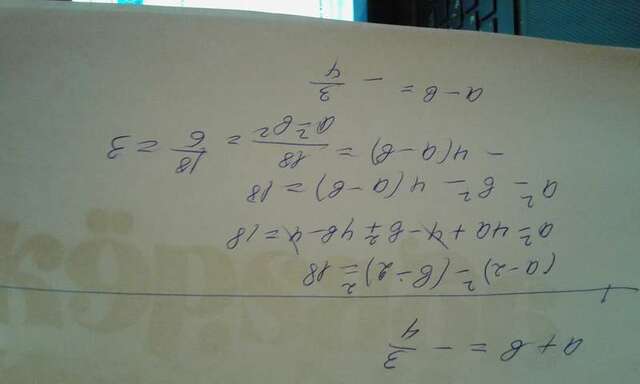 a + b = - 3/4
(a-2)² - (b-2)² = 18
a² - 4a + 4 - b² + 4b - 4 = 18
a² - b² - 4(a-b) = 18
- 4(a-b) = 18/(a²-b²) = 18/6 = 3
a - b = - 3/4